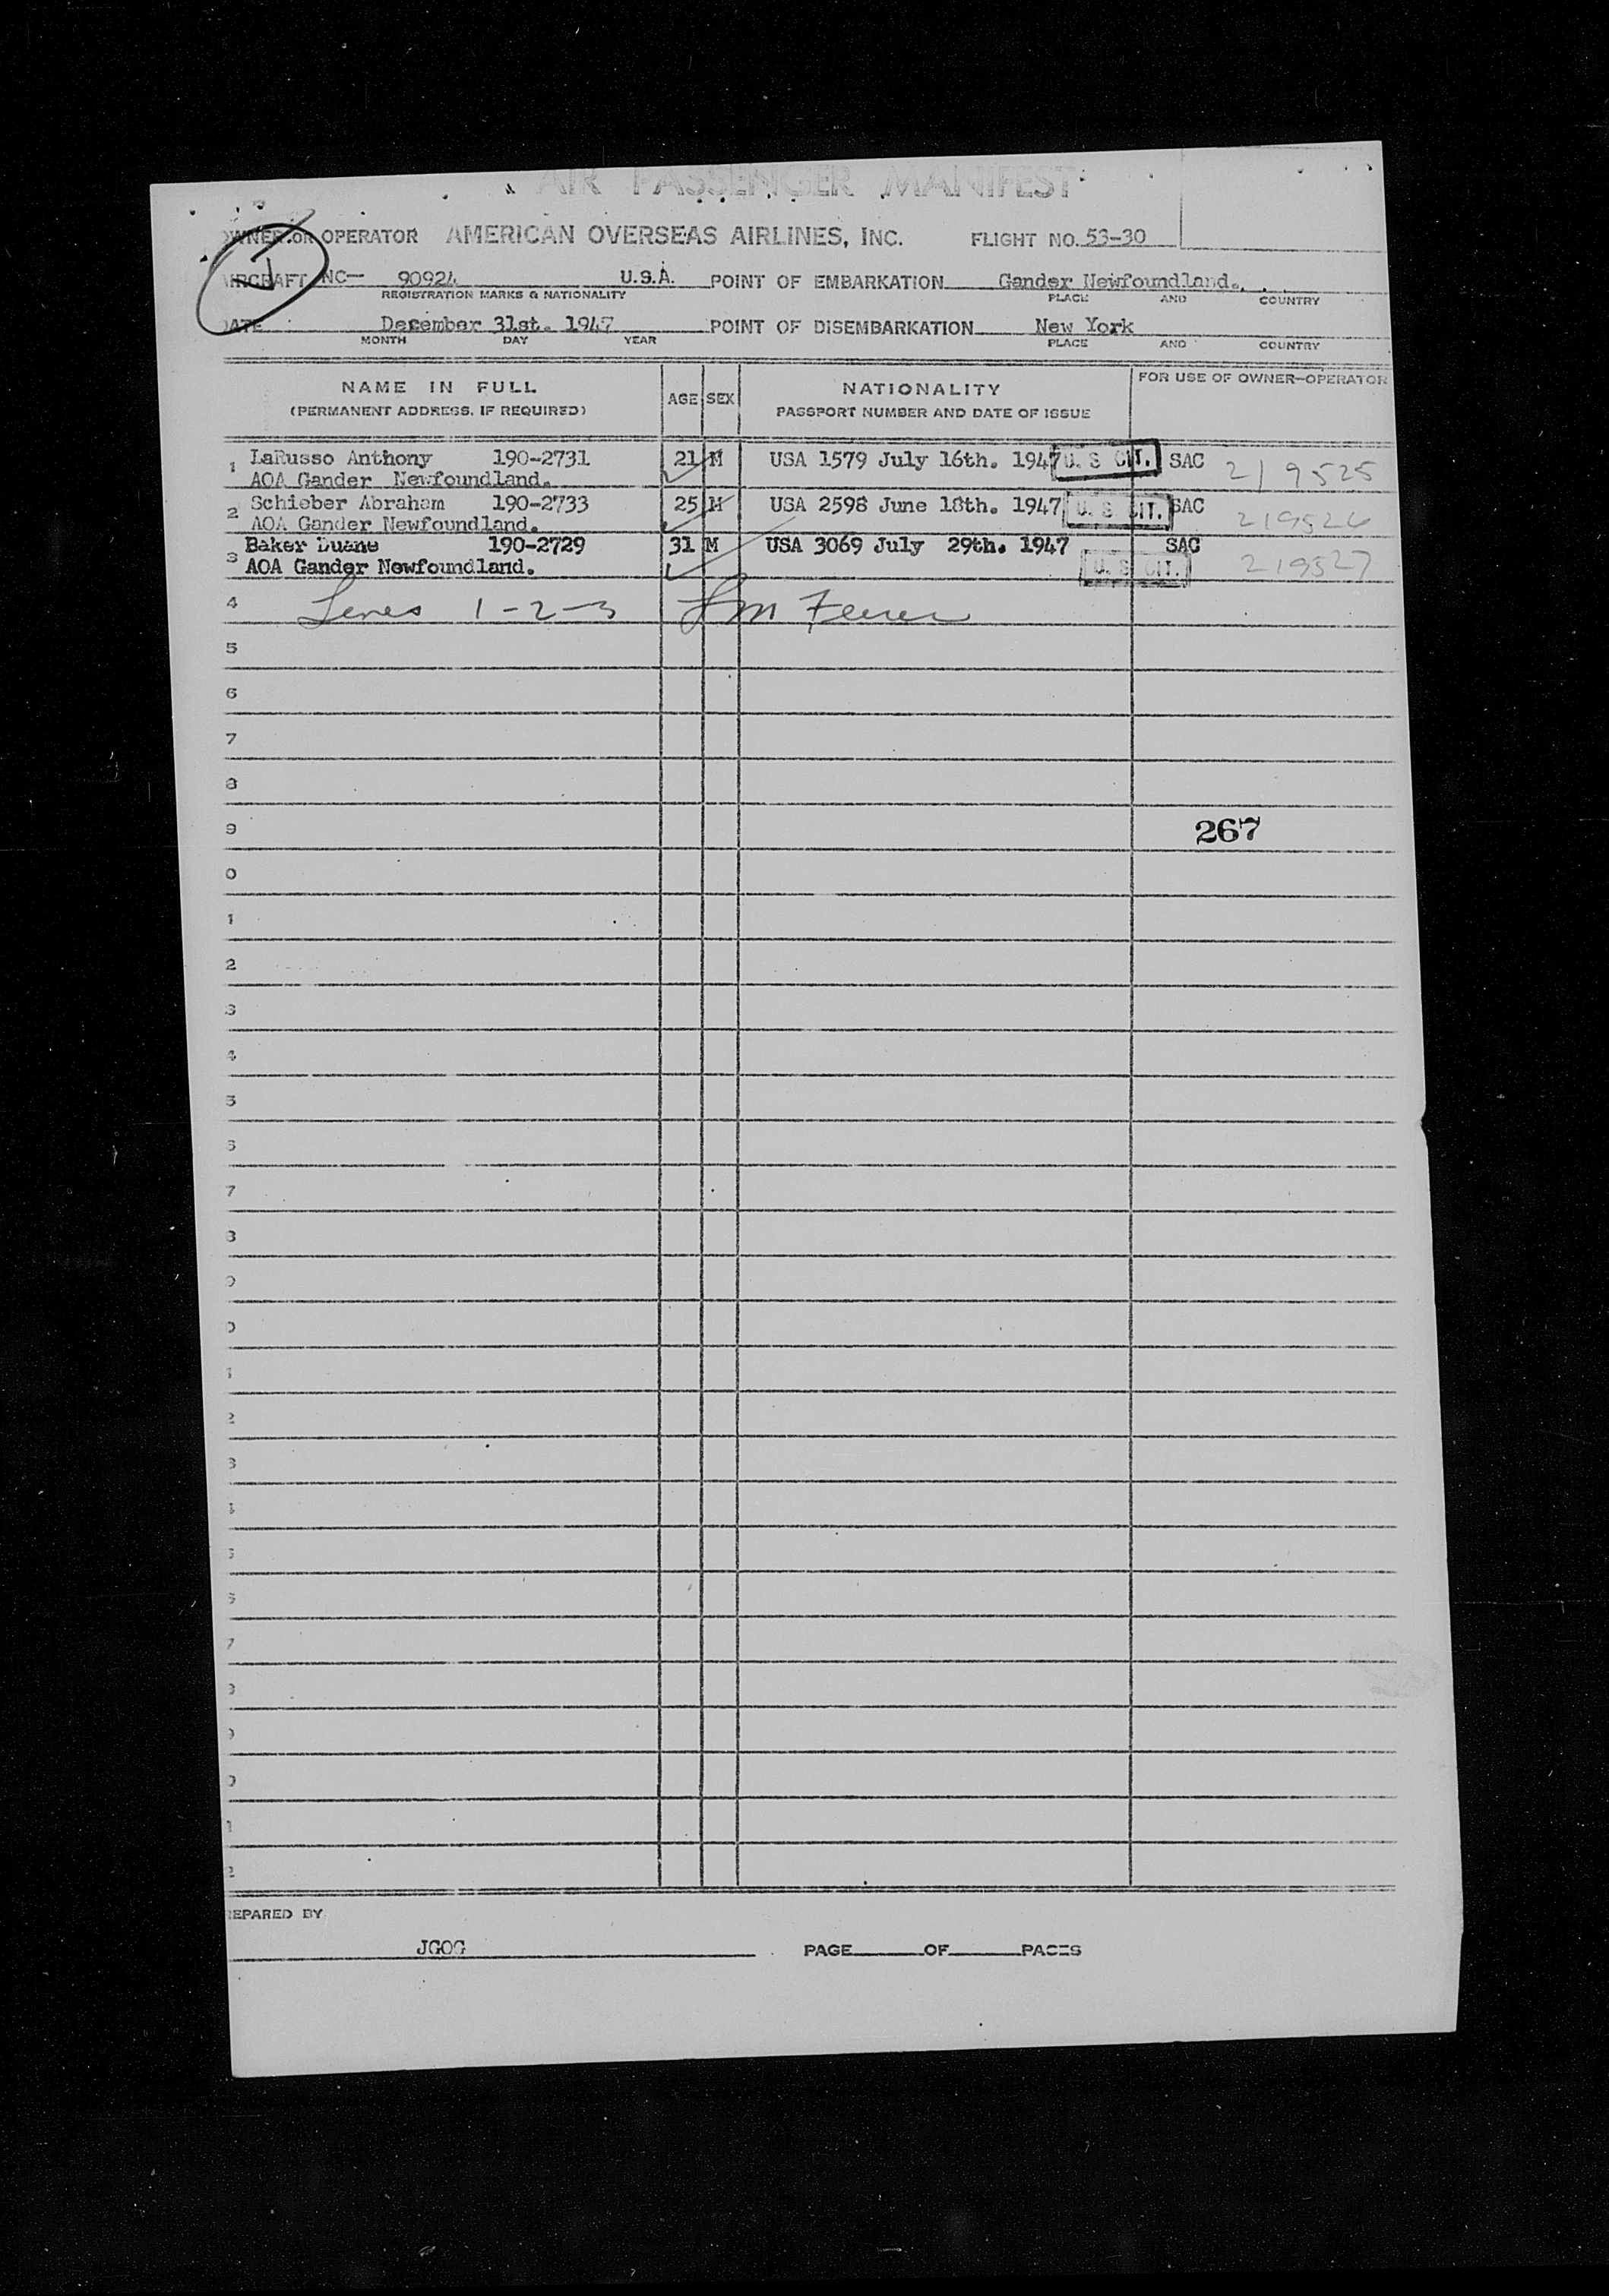 AIR PASSENGER MANIFEST
1
OWNER OR OPERATOR AMERICAN OVERSEAS AIRLINES, INC. FLIGHT NO. 53-30
AIRCRAFT NC— 90924 U.S.A. POINT OF EMBARKATION Gander Newfoundland.
REGISTRATION MARKS & NATIONALITY PLACE AND COUNTRY
DATE December 31st. 1947 POINT OF DISEMBARKATION New York
MONTH DAY YEAR PLACE AND COUNTRY
NAME IN FULL AGE SEX NATIONALITY FOR USE OF OWNER-OPERATOR
(PERMANENT ADDRESS, IF REQUIRED) PASSPORT NUMBER AND DATE OF ISSUE
1 LaRusso Anthony 190-2731 21 M USA 1579 July 16th. 1947 U. S CIT. SAC 219525
AOA Gander Newfoundland.
2 Schieber Abraham 190-2733 25 M USA 2598 June 18th. 1947 U. S CIT. SAC 219526
AOA Gander Newfoundland.
3 Baker Duane 190-2729 31 M USA 3069 July 29th. 1947 SAC
AOA Gander Newfoundland. U. S CIT. 219527
4 Lines 1-2-3
5
6
7
8
9 267
0
1
2
3
4
5
6
7
8
9
0
1
2
3
4
5
6
7
8
9
0
1
2
PREPARED BY
JGOG PAGE OF PAGES